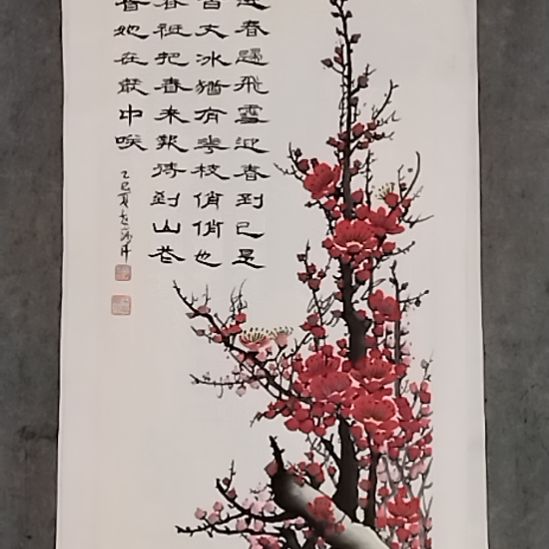 送春歸飛雪迎春到已是
百丈冰猶有華枝俏俏也
春祗把春来報待到山花
時她在叢中咲
乙巳夏